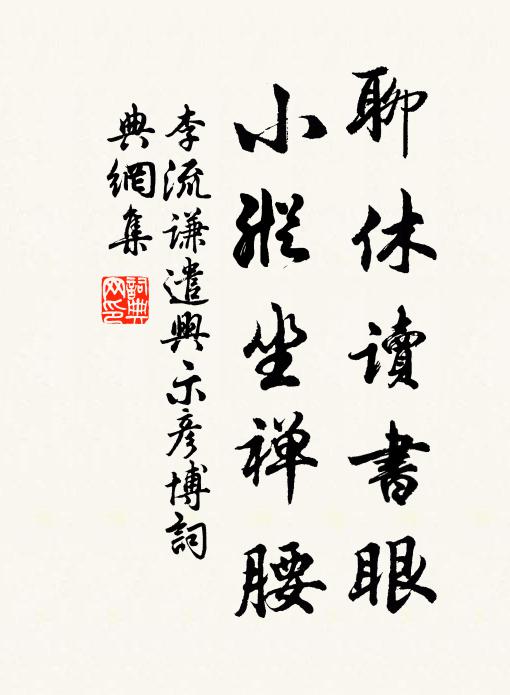 聊休讀書眼
小縱坐禅腰
李流謙遣興示彥博詞
典網集
詞典
网印